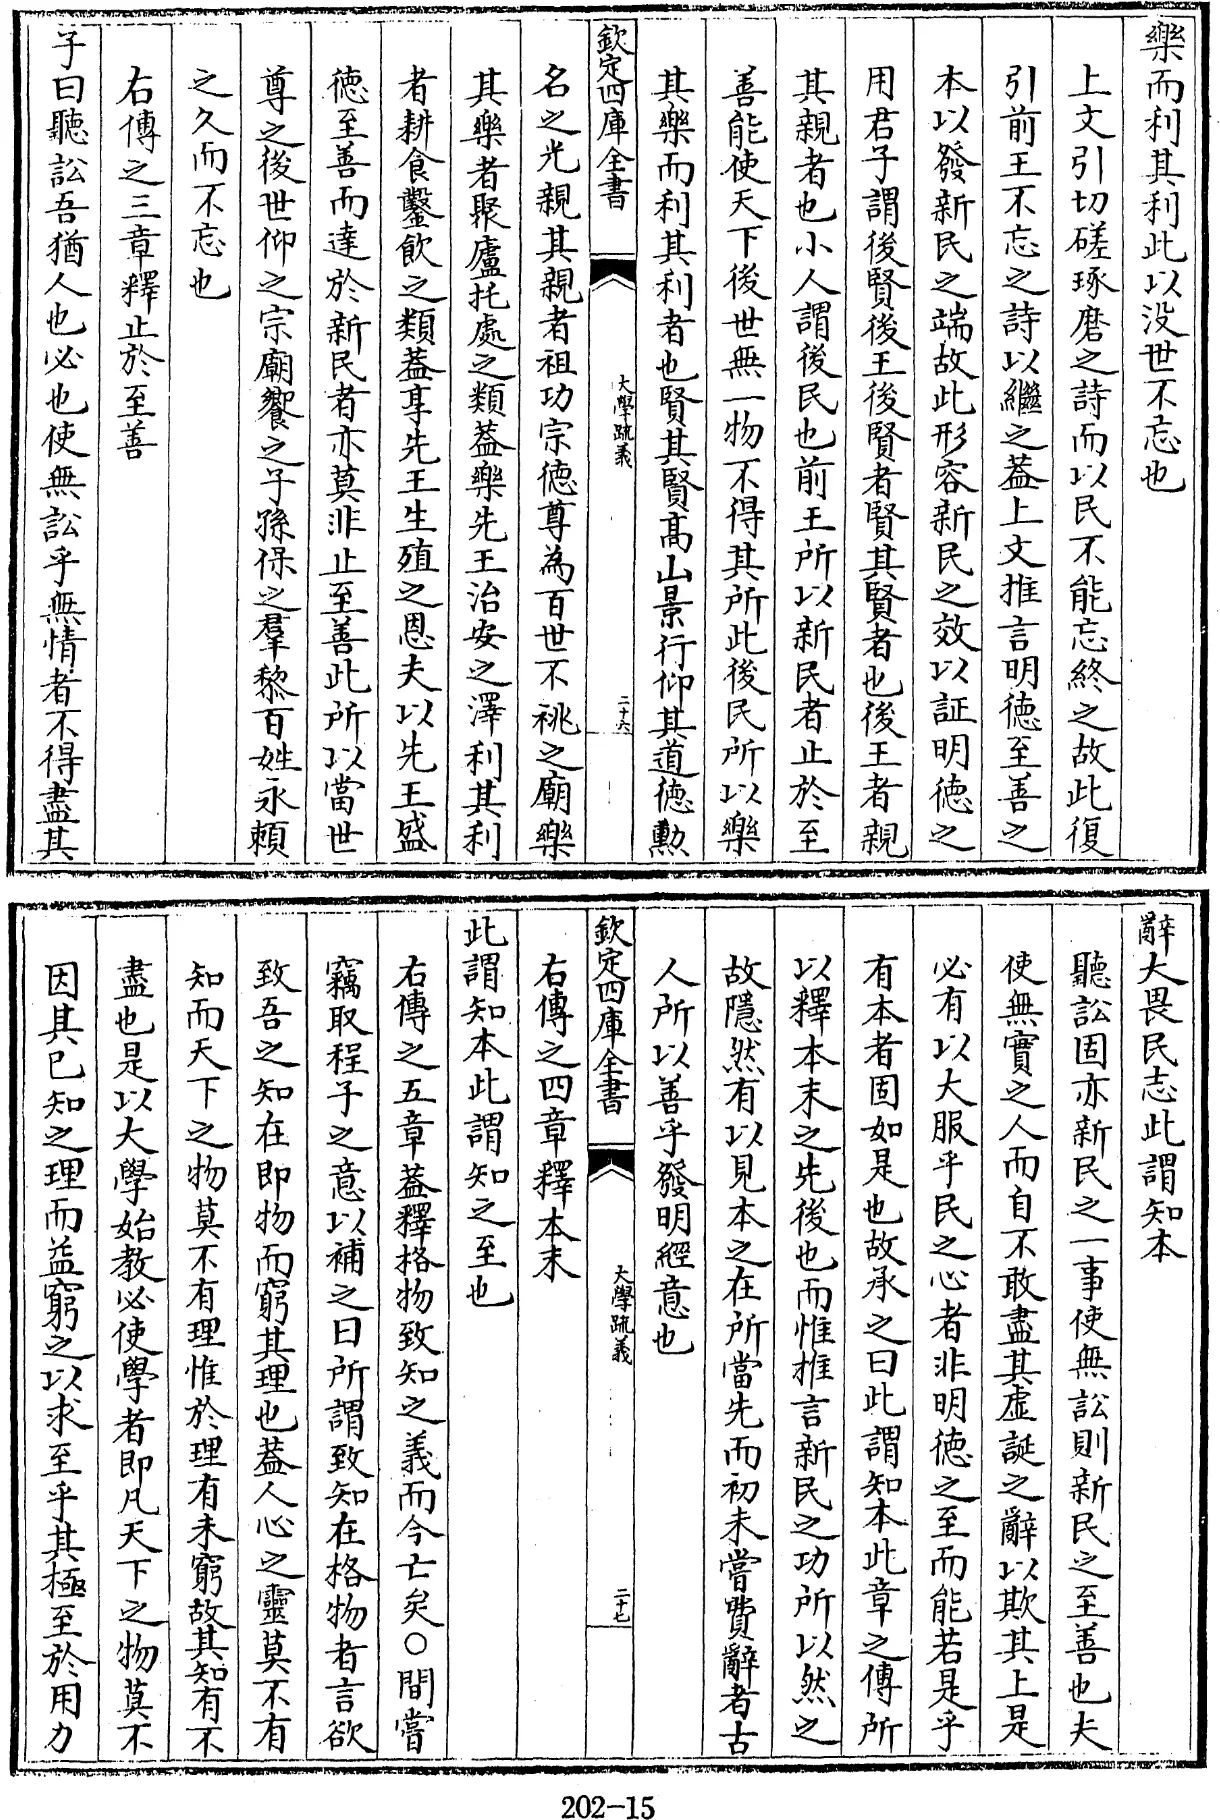 樂而利其利此以没世不忘也
上文引切磋琢磨之詩而以民不能忘終之故此復
引前王不忘之詩以繼之葢上文推言明德至善之
本以發新民之端故此形容新民之效以証明德之
用君子謂後賢後王後賢者賢其賢者也後王者親
其親者也小人謂後民也前王所以新民者止於至
善能使天下後世無一物不得其所此後民所以樂
其樂而利其利者也賢其賢髙山景行仰其道德勲
欽定四庫全書
大學疏義
二十六
名之光親其親者祖功宗德尊為百世不祧之廟樂
其樂者聚廬托處之類葢樂先王治安之澤利其利
者耕食鑿飲之類葢享先王生殖之恩夫以先王盛
德至善而達於新民者亦莫非止至善此所以當世
尊之後世仰之宗廟饗之子孫保之羣黎百姓永賴
之久而不忘也
右傳之三章釋止於至善
子曰聽訟吾猶人也必也使無訟乎無情者不得盡其
辭大畏民志此謂知本
聽訟固亦新民之一事使無訟則新民之至善也夫
使無實之人而自不敢盡其虚誕之辭以欺其上是
必有以大服乎民之心者非明德之至而能若是乎
有本者固如是也故承之曰此謂知本此章之傳所
以釋本末之先後也而惟推言新民之功所以然之
故隱然有以見本之在所當先而初未嘗費辭者古
人所以善乎發明經意也
欽定四庫全書
大學疏義
二十七
右傳之四章釋本末
此謂知本此謂知之至也
右傳之五章葢釋格物致知之義而今亡矣○間嘗
竊取程子之意以補之曰所謂致知在格物者言欲
致吾之知在即物而窮其理也葢人心之靈莫不有
知而天下之物莫不有理惟於理有未窮故其知有不
盡也是以大學始教必使學者即凡天下之物莫不
因其已知之理而益窮之以求至乎其極至於用力
202-15